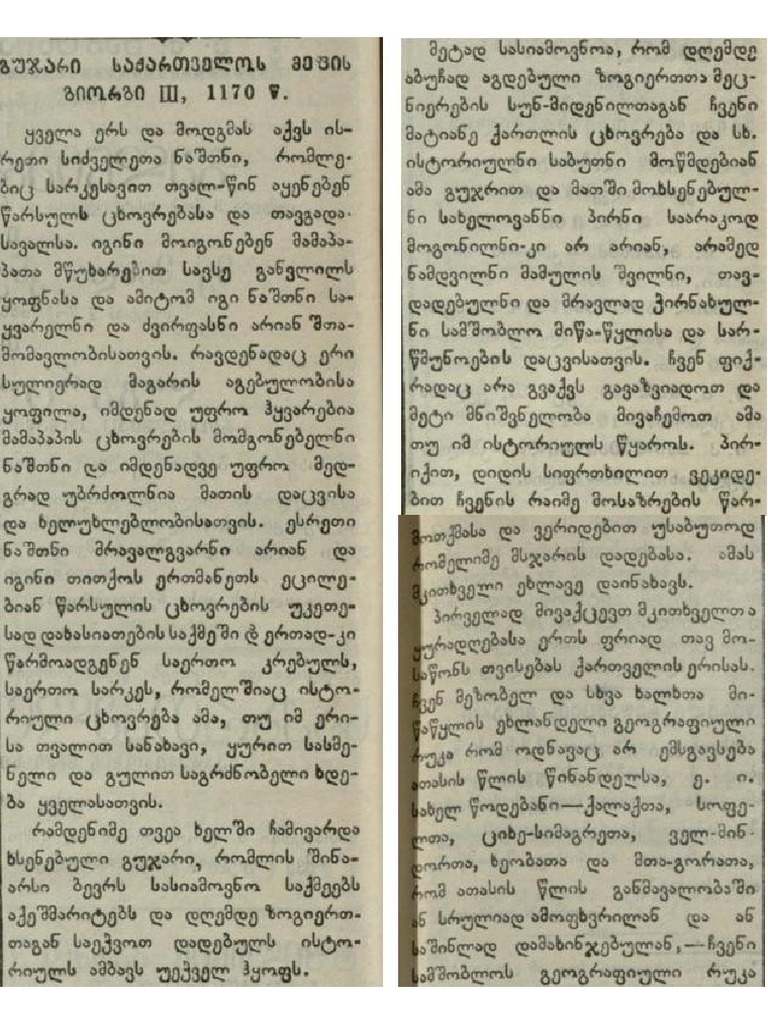 გუჯარი საქართველოს მეფის
გიორგი III, 1170 წ.
ყველა ერს და მოდგმას აქვს ის-
რეთი სიძველეთა ნაშთნი, რომლე-
ბიც სარკესავით თვალ-წინ აყენებენ
წარსულს ცხოვრებასა და თავგადა-
სავალსა. იგინი მოიგონებენ მამაპა-
პათა მწუხარებით სავსე განვლილს
ყოფნასა და ამიტომ იგი ნაშთნი სა-
ყვარელნი და ძვირფასნი არიან შთა-
მომავლობისათვის. რავდენადაც ერი
სულიერად მაგარის აგებულობისა
ყოფილა, იმდენად უფრო ჰყვარებია
მამაპაპის ცხოვრების მომგონებელნი
ნაშთნი და იმდენადვე უფრო მედ-
გრად უბრძოლნია მათის დაცვისა
და ხელუხლებლობისათვის. ესრეთი
ნაშთნი მრავალგვარნი არიან და
იგინი თითქოს ერთმანეთს ეცილე-
ბიან წარსულის ცხოვრების უკეთე-
სად დახასიათების საქმეში და ერთად-კი
წარმოადგენენ საერთო კრებულს,
საერთო სარკეს, რომელშიაც ისტო-
რიული ცხოვრება ამა, თუ იმ ერი-
სა თვალით სანახავი, ყურით სასმე-
ნელი და გულით საგრძნობელი ხდე-
ბა ყველასათვის.
რამდენიმე თვეა ხელში ჩამივარდა
ხსენებული გუჯარი, რომლის შინა-
არსი ბევრს სასიამოვნო საქმეებს
აქეშმარიტებს და დღემდე ზოგიერთ-
თაგან საეჭვოთ დადებულს ისტო-
რიულს ამბავს უექველ ჰყოფს.
მეტად სასიამოვნოა, რომ დღემდე
აბუჩად აგდებული ზოგიერთთა მეც-
ნიერების სუნ-მიდენილთაგან ჩვენი
მატიანე ქართლის ცხოვრება და სხ.
ისტორიულნი საბუთნი მოწმდებიან
ამა გუჯრით და მათში მოხსენებულ-
ნი სახელოვანნი პირნი საარაკოდ
მოგონილნი-კი არ არიან, არამედ
ნამდვილნი მამულის შვილნი, თავ-
დადებულნი და მრავლად ჭირნახულ-
ნი სამშობლო მიწა-წყლისა და სარ-
წმუნოების დაცვისათვის. ჩვენ ფიქ-
რადაც არა გვაქვს გავაზვიადოთ და
მეტი მნიშვნელობა მივაჩემოთ ამა
თუ იმ ისტორიულს წყაროს. პირ-
იქით, დიდის სიფრთხილით ვეკიდე-
ბით ჩვენის რაიმე მოსაზრების წარ-
მოთქმასა და ვერიდებით უსაბუთოდ
რომელიმე მსჯარის დადებასა. ამას
მკითხველი ეხლავე დაინახავს.
პირველად მივაქცევთ მკითხველთა
ყურადღებასა ერთს ფრიად თავ მო-
საწონს თვისებას ქართველის ერისას.
ჩვენ მეზობელ და სხვა ხალხთა მი-
წაწყლის ეხლანდელი გეოგრაფიული
რუკა რომ ოდნავაც არ ემსგავსება
ათასის წლის წინანდელსა, ე. ი.
სახელ წოდებანი—ქალაქთა, სოფე-
ლთა, ციხე-სიმაგრეთა, ველ-მინ-
დორთა, ხეობათა და მთა-გორათა,
რომ ათასის წლის განმავალობაში
ან სრულიად ამოფხვრილან და ან
საშინლად დამახინჯებულან,—ჩვენი
სამშობლოს გეოგრაფიული რუკა